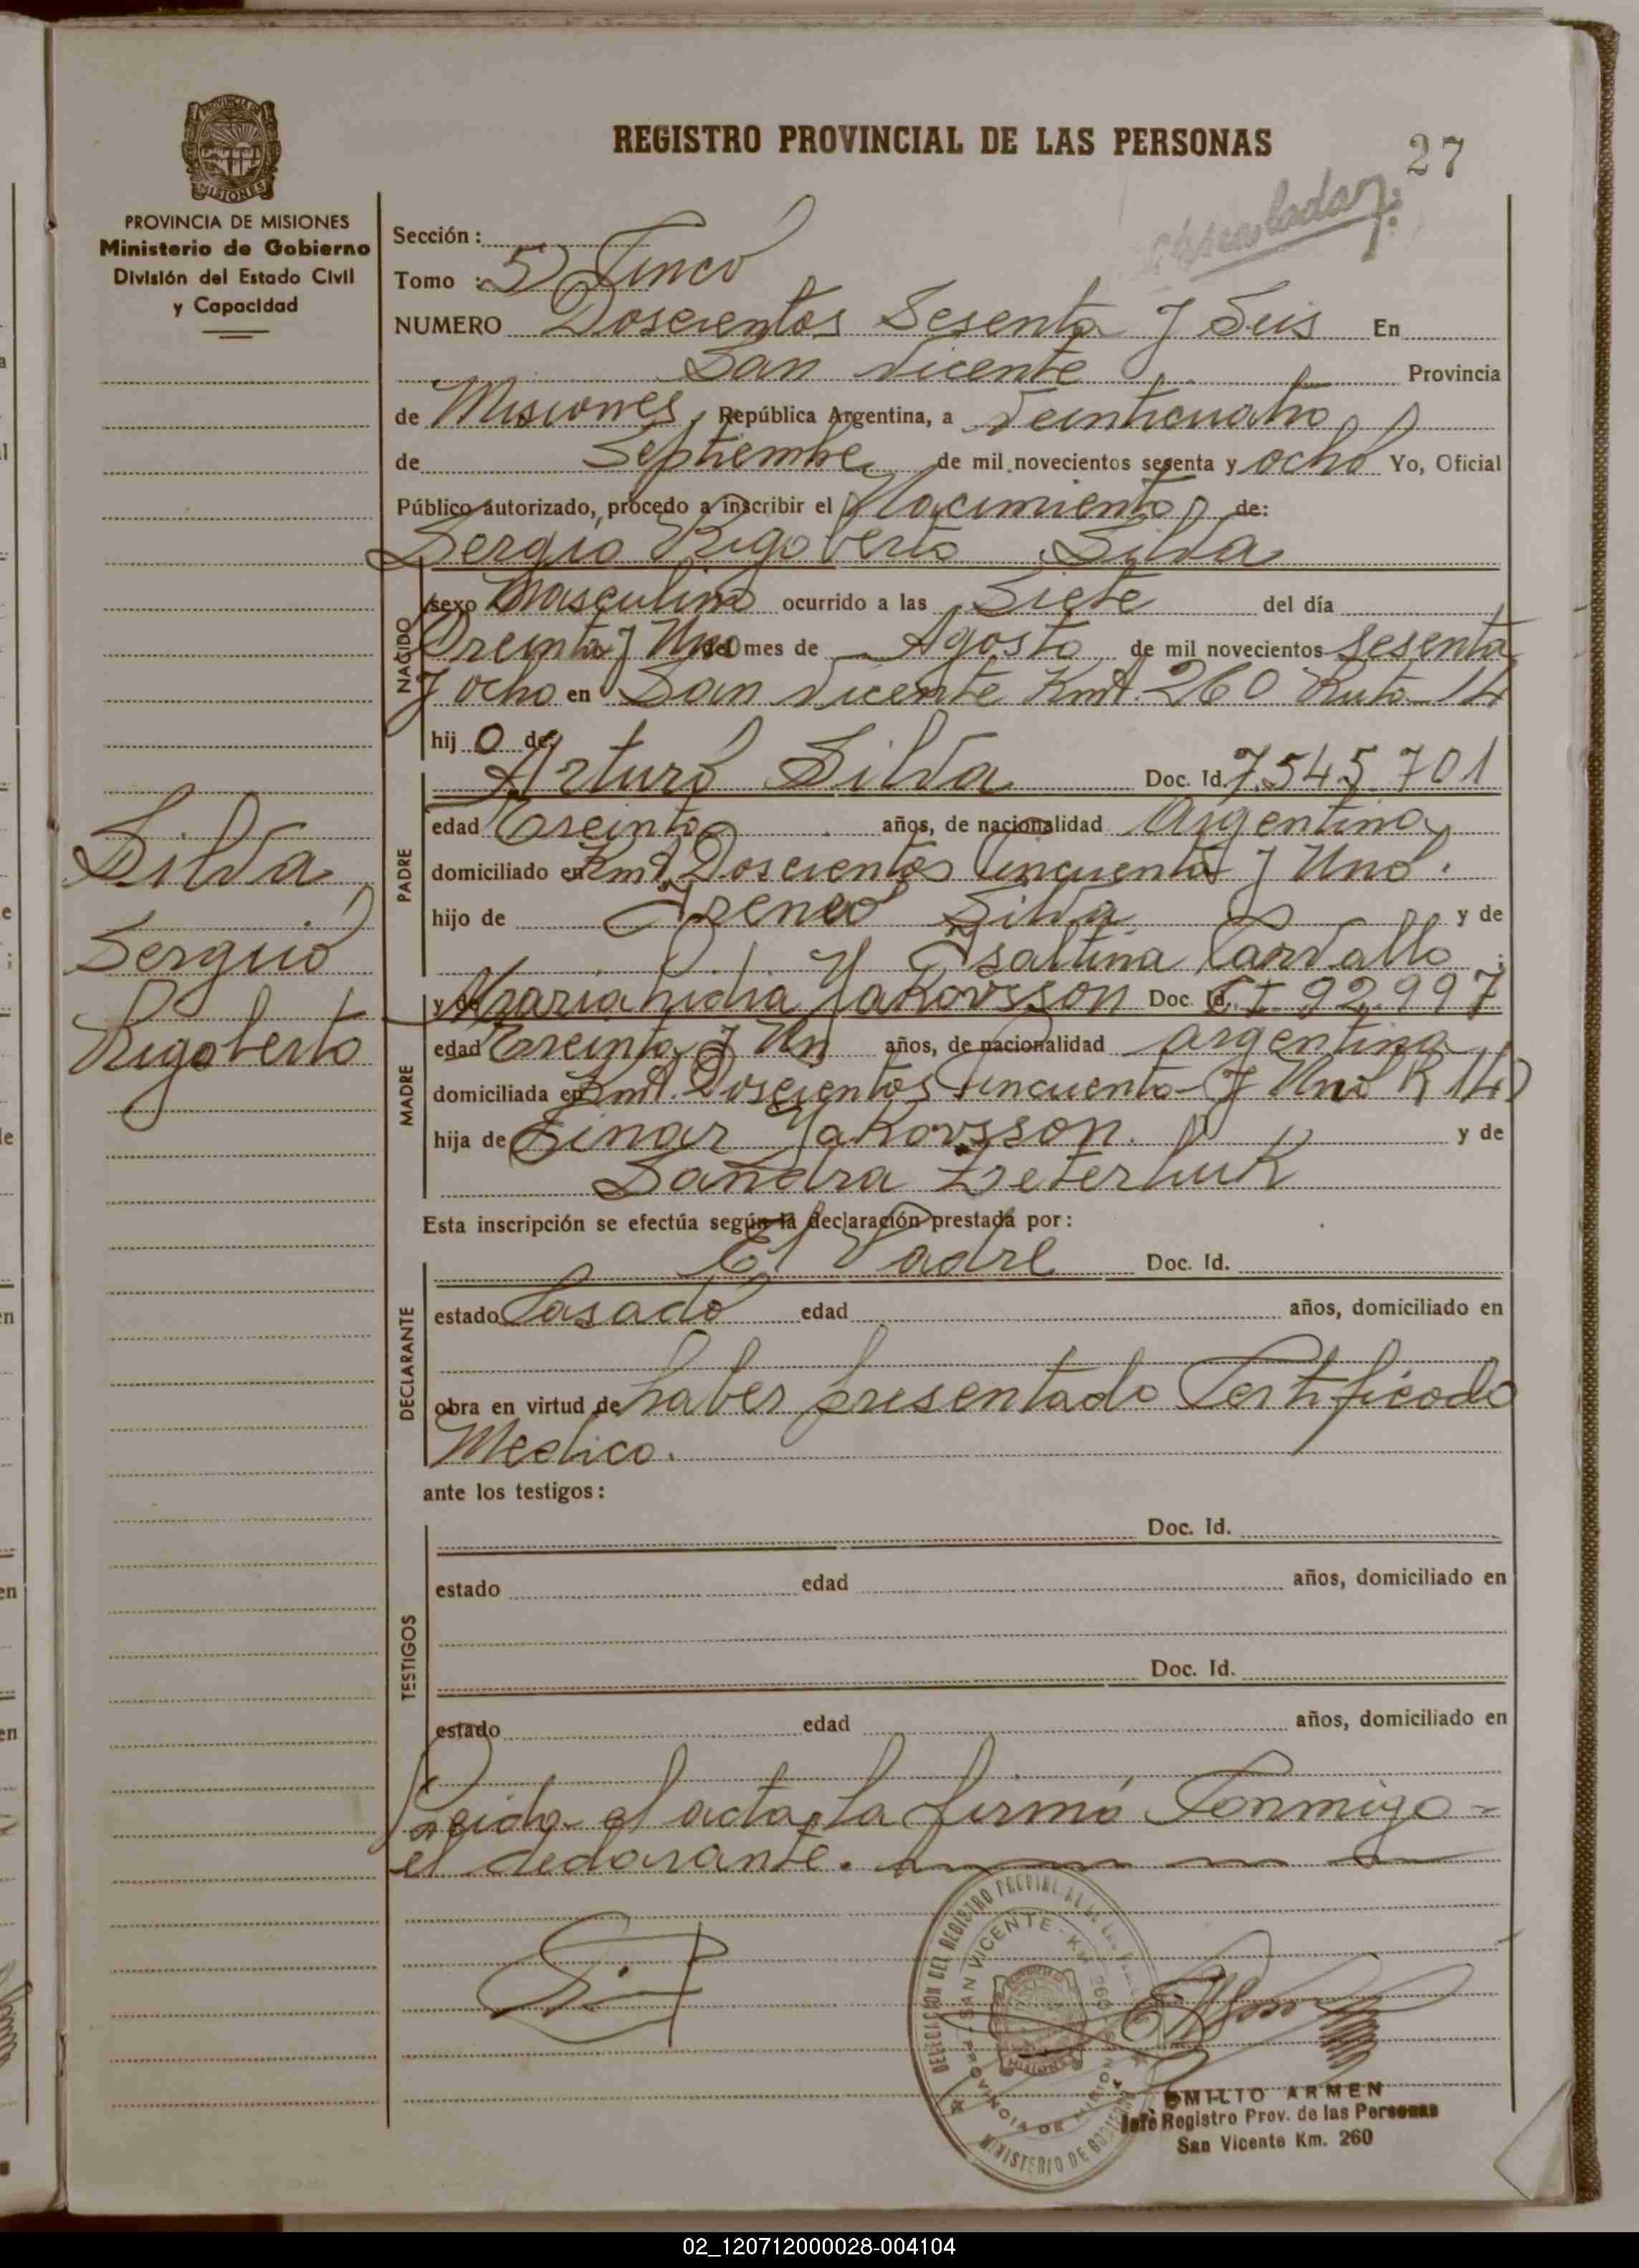 REGISTRO PROVINCIAL DE LAS PERSONAS
27
PROVINCIA DE MISIONES
Ministerio de Gobierno
División del Estado Civil
y Capacidad
Sección :
Tomo : 5) Cinco
NUMERO Doscientos Sesenta y Seis En
San Vicente Provincia
de Misiones, República Argentina, a Veinticuatro
de Septiembre de mil novecientos sesenta y ocho Yo, Oficial
Público autorizado, procedo a inscribir el Nacimiento de:
Sergio Rigoberto Silva
NACIDO
sexo Masculino ocurrido a las Siete del día
Treinta y Uno del mes de Agosto de mil novecientos sesenta
y ocho en San Vicente Kmt. 260 Ruta 14
hij o de:
Arturo Silva Doc. Id. 7.545.701
PADRE
edad Treinta años, de nacionalidad Argentino
domiciliado en Kmt. Doscientos Cincuenta y Uno.
hijo de Ireneo Silva y de
Isaltina Carvallo
y de Maria Lidia Yakovsson Doc. Id. CI 92.997
MADRE
edad Treinta y Un años, de nacionalidad argentina
domiciliada en Kmt. Doscientos Cincuenta y Uno R 14)
hija de Einar Yakovsson. y de
Sandra
Esta inscripción se efectúa según la declaración prestada por:
El Padre Doc. Id.
DECLARANTE
estado Casado edad años, domiciliado en
obra en virtud de haber presentado Certificado
Medico.
ante los testigos:
Doc. Id.
TESTIGOS
estado edad años, domiciliado en
Doc. Id.
estado edad años, domiciliado en
Leida el acta, la firmó Conmigo
el declarante.
Silva
Sergio
Rigoberto
DELEGACION DEL REGISTRO PROVINCIAL DE LAS
SAN VICENTE - KM 260
PROVINCIA DE MISIONES
MINISTERIO DE GOBIERNO
EMILIO ARMEN
Jefe Registro Prov. de las Personas
San Vicente Km. 260
02_120712000028-004104